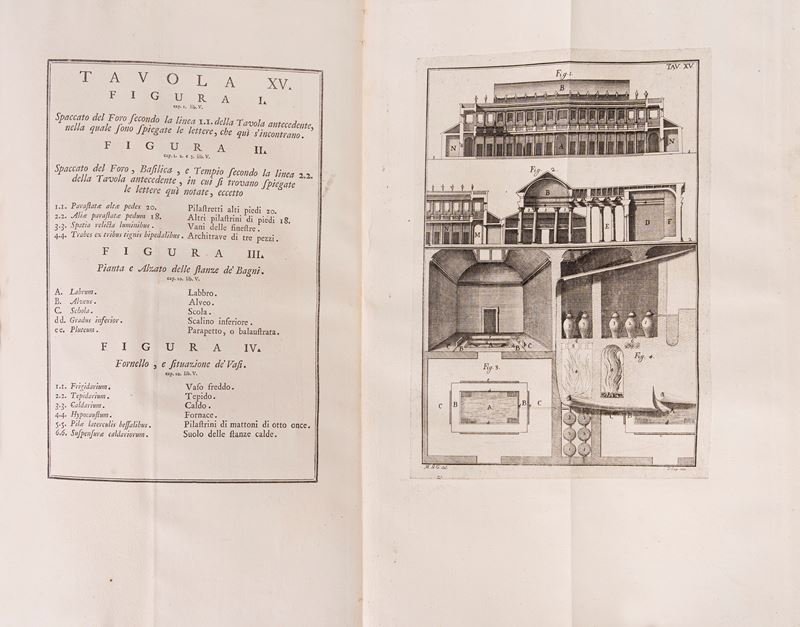 TAVOLA XV.
FIGURA I.
cap. 1. lib. V.
Spaccato del Foro ſecondo la linea 1.1. della Tavola antecedente,
nella quale ſono ſpiegate le lettere, che quì s'incontrano.
FIGURA II.
cap. 1. 2. e 3. lib. V.
Spaccato del Foro, Baſilica, e Tempio ſecondo la linea 2.2.
della Tavola antecedente, in cui ſi trovano ſpiegate
le lettere quì notate, eccetto
1.1. Paraſtatæ altæ pedes 20. Pilaſtretti alti piedi 20.
2.2. Aliæ paraſtatæ pedum 18. Altri pilaſtrini di piedi 18.
3.3. Spatia relicta luminibus. Vani delle fineſtre.
4.4. Trabes ex tribus tignis bipedalibus. Architrave di tre pezzi.
FIGURA III.
Pianta e Alzato delle ſtanze de' Bagni.
cap. 10. lib. V.
A. Labrum. Labbro.
B. Alveus. Alveo.
C. Schola. Scola.
dd. Gradus inferior. Scalino inferiore.
ee. Pluteum. Parapetto, o balauſtrata.
FIGURA IV.
Fornello, e ſituazione de' Vaſi.
cap. 10. lib. V.
1.1. Frigidarium. Vaſo freddo.
2.2. Tepidarium. Tepido.
3.3. Caldarium. Caldo.
4.4. Hypocauſtum. Fornace.
5.5. Pilæ laterculis beſſalibus. Pilaſtrini di mattoni di otto once.
6.6. Suſpenſuræ caldariorum. Suolo delle ſtanze calde.
TAV. XV
Fig. 1.
B
N A N
Fig. 2.
B
N M E D F
Fig. 3.
Fig. 4.
C B A B C